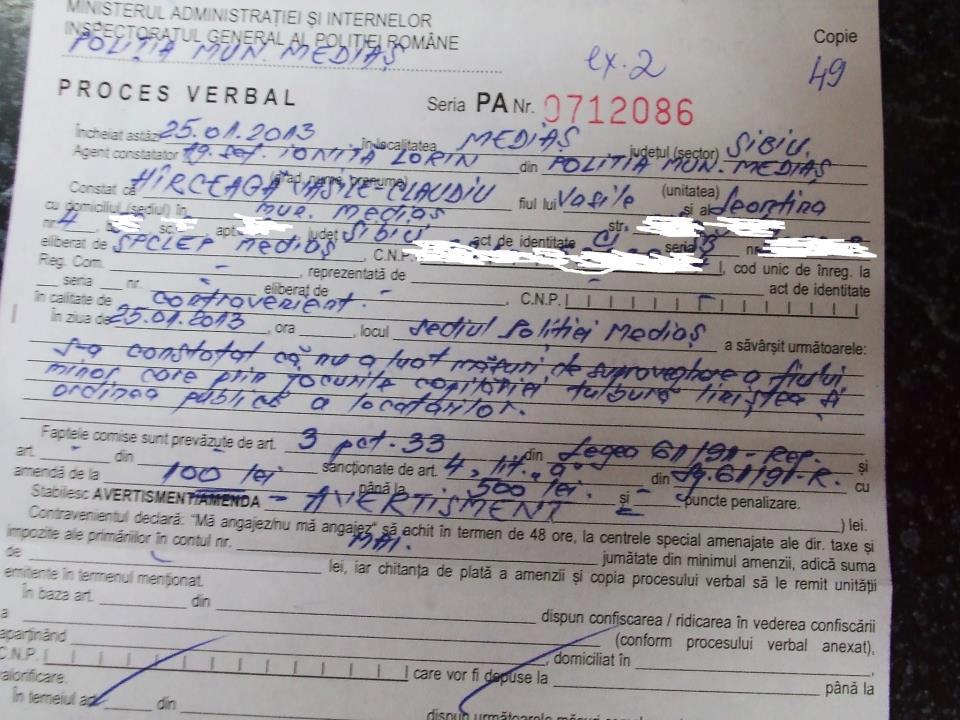 MINISTERUL ADMINISTRAȚIEI ȘI INTERNELOR
INSPECTORATUL GENERAL AL POLIȚIEI ROMÂNE
POLIȚIA MUN. MEDIAȘ
Copie
ex. 2
49
PROCES VERBAL Seria PA Nr. 0712086
Încheiat astăzi 25.01.2013 în localitatea MEDIAȘ județul (sector) SIBIU.
Agent constatator IONIȚĂ LORIN din POLIȚIA MUN. MEDIAȘ
(grad, nume, prenume) (unitatea)
Constat că HÎRCEAGĂ VASILE-CLAUDIU fiul lui Vasile și al Leontina
cu domiciliul (sediul) în mun. Mediaș str.
nr. 4 sc. apt. județ SIBIU act de identitate CI seria nr.
eliberat de SPCLEP Mediaș C.N.P. , cod unic de înreg. la
Reg. Com. - , reprezentată de - act de identitate
seria nr. eliberat de - , C.N.P. -
în calitate de contravenient.
În ziua de 25.01.2013, ora , locul Sediul Poliției Mediaș a săvârșit următoarele:
S-a constatat că nu a luat măsuri de supraveghere a fiului
minor care prin jocurile copilăriei tulbură liniștea și
ordinea publică a locatarilor.
Faptele comise sunt prevăzute de art. 3 pct. 33 din Legea 61/91-Rep. și
art. - din - sancționate de art. 4, lit. „a" din Lg. 61/91-R. cu
amendă de la 100 lei până la 500 lei. și - puncte penalizare.
Stabilesc AVERTISMENT/AMENDA - AVERTISMENT ) lei.
Contravenientul declară: "Mă angajez/nu mă angajez" să achit în termen de 48 ore, la centrele special amenajate ale dir. taxe și
impozite ale primăriilor în contul nr. MAI. jumătate din minimul amenzii, adică suma
de - lei, iar chitanța de plată a amenzii și copia procesului verbal să le remit unității
emitente în termenul menționat.
În baza art. din dispun confiscarea / ridicarea în vederea confiscării
a (conform procesului verbal anexat),
aparținând , domiciliat în
C.N.P. care vor fi depuse la până la
valorificare.
În temeiul art. din dispun următoarele